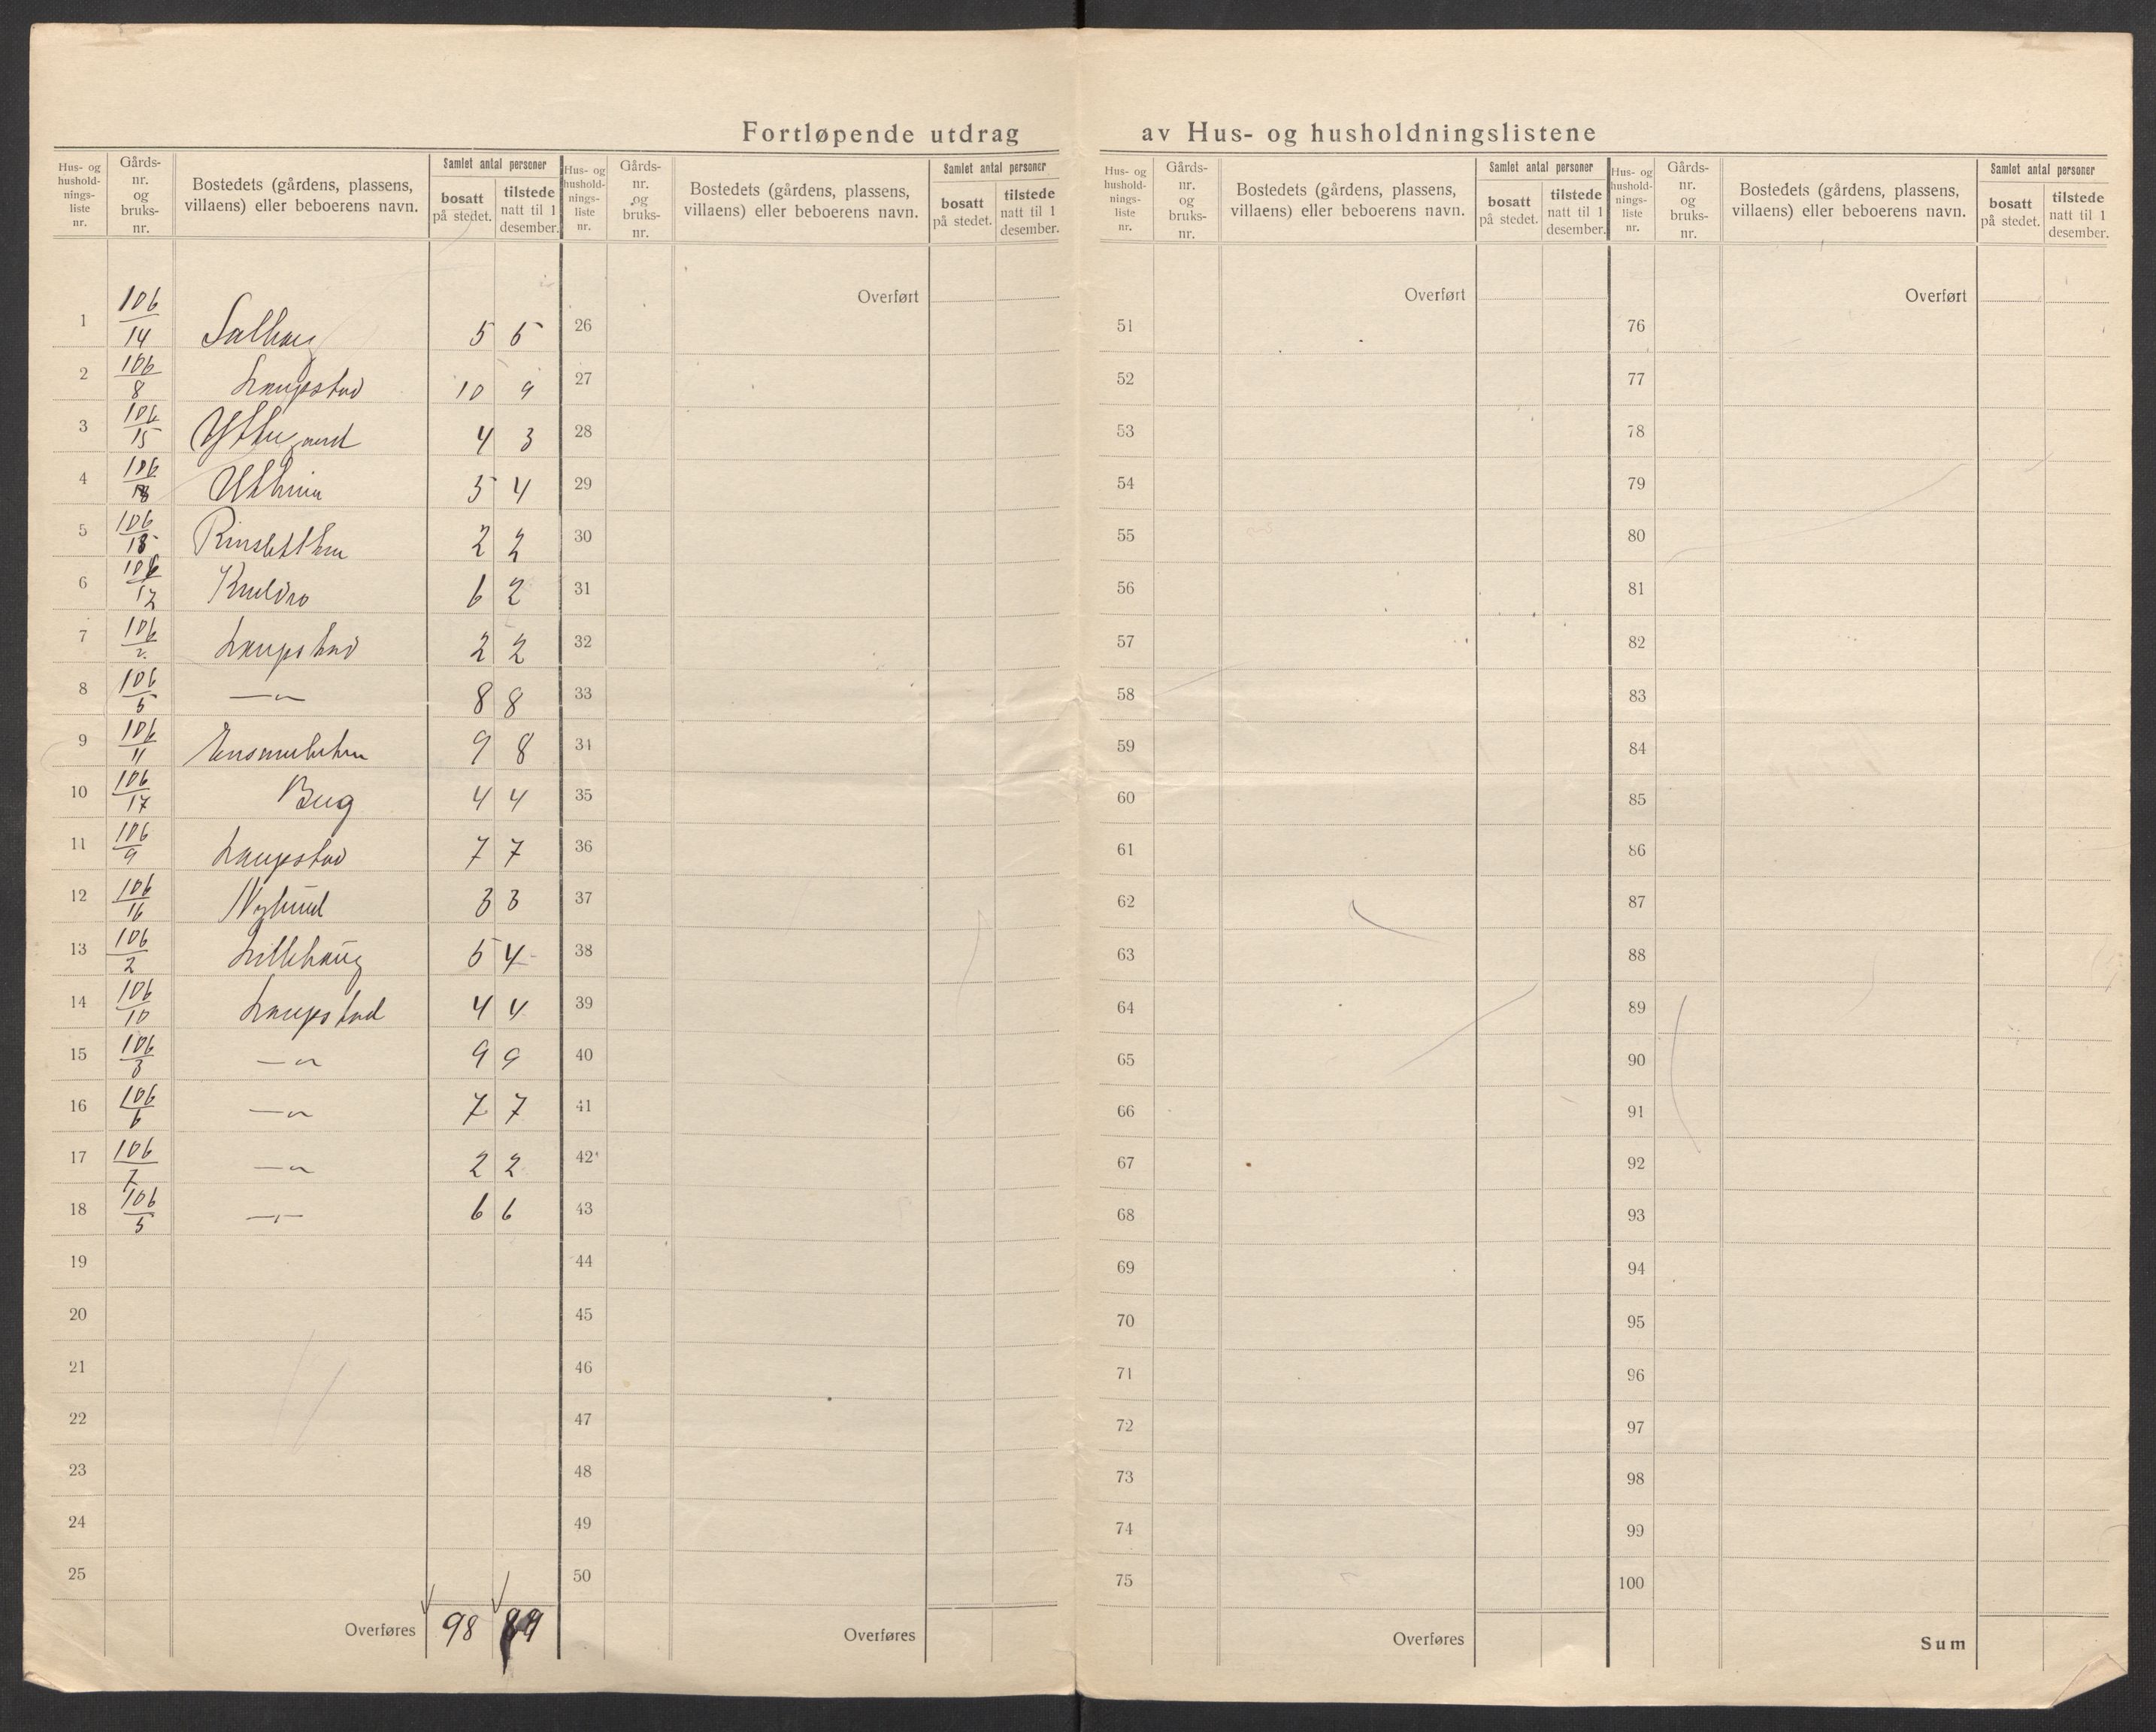 Fortløpende utdrag av Hus- og husholdningslistene
Hus- og hushold-nings-liste nr.
Gårds-nr. og bruks-nr.
Bostedets (gårdens, plassens, villaens) eller beboerens navn.
Samlet antal personer
bosatt på stedet.
tilstede natt til 1 desember.
1 106/14 5 5
2 106/8 Laupstad 10 9
3 106/15 4 3
4 106/ 5 4
5 106/ 2 2
6 106/12 6 2
7 106/2 Laupstad 2 2
8 106/5 —"— 8 8
9 106/11 9 8
10 106/17 4 4
11 106/9 Laupstad 7 7
12 106/16 Nylund 3 3
13 106/2 Lillehaug 5 4
14 106/10 Laupstad 4 4
15 106/3 —"— 9 9
16 106/6 —"— 7 7
17 106/7 —"— 2 2
18 106/5 —"— 6 6
19
20
21
22
23
24
25
Overføres 98 89
Hus- og hushold-nings-liste nr.
Gårds-nr. og bruks-nr.
Bostedets (gårdens, plassens, villaens) eller beboerens navn.
Samlet antal personer
bosatt på stedet.
tilstede natt til 1 desember.
Overført
26
27
28
29
30
31
32
33
34
35
36
37
38
39
40
41
42
43
44
45
46
47
48
49
50
Overføres
Hus- og hushold-nings-liste nr.
Gårds-nr. og bruks-nr.
Bostedets (gårdens, plassens, villaens) eller beboerens navn.
Samlet antal personer
bosatt på stedet.
tilstede natt til 1 desember.
Overført
51
52
53
54
55
56
57
58
59
60
61
62
63
64
65
66
67
68
69
70
71
72
73
74
75
Overføres
Hus- og hushold-nings-liste nr.
Gårds-nr. og bruks-nr.
Bostedets (gårdens, plassens, villaens) eller beboerens navn.
Samlet antal personer
bosatt på stedet.
tilstede natt til 1 desember.
Overført
76
77
78
79
80
81
82
83
84
85
86
87
88
89
90
91
92
93
94
95
96
97
98
99
100
Sum